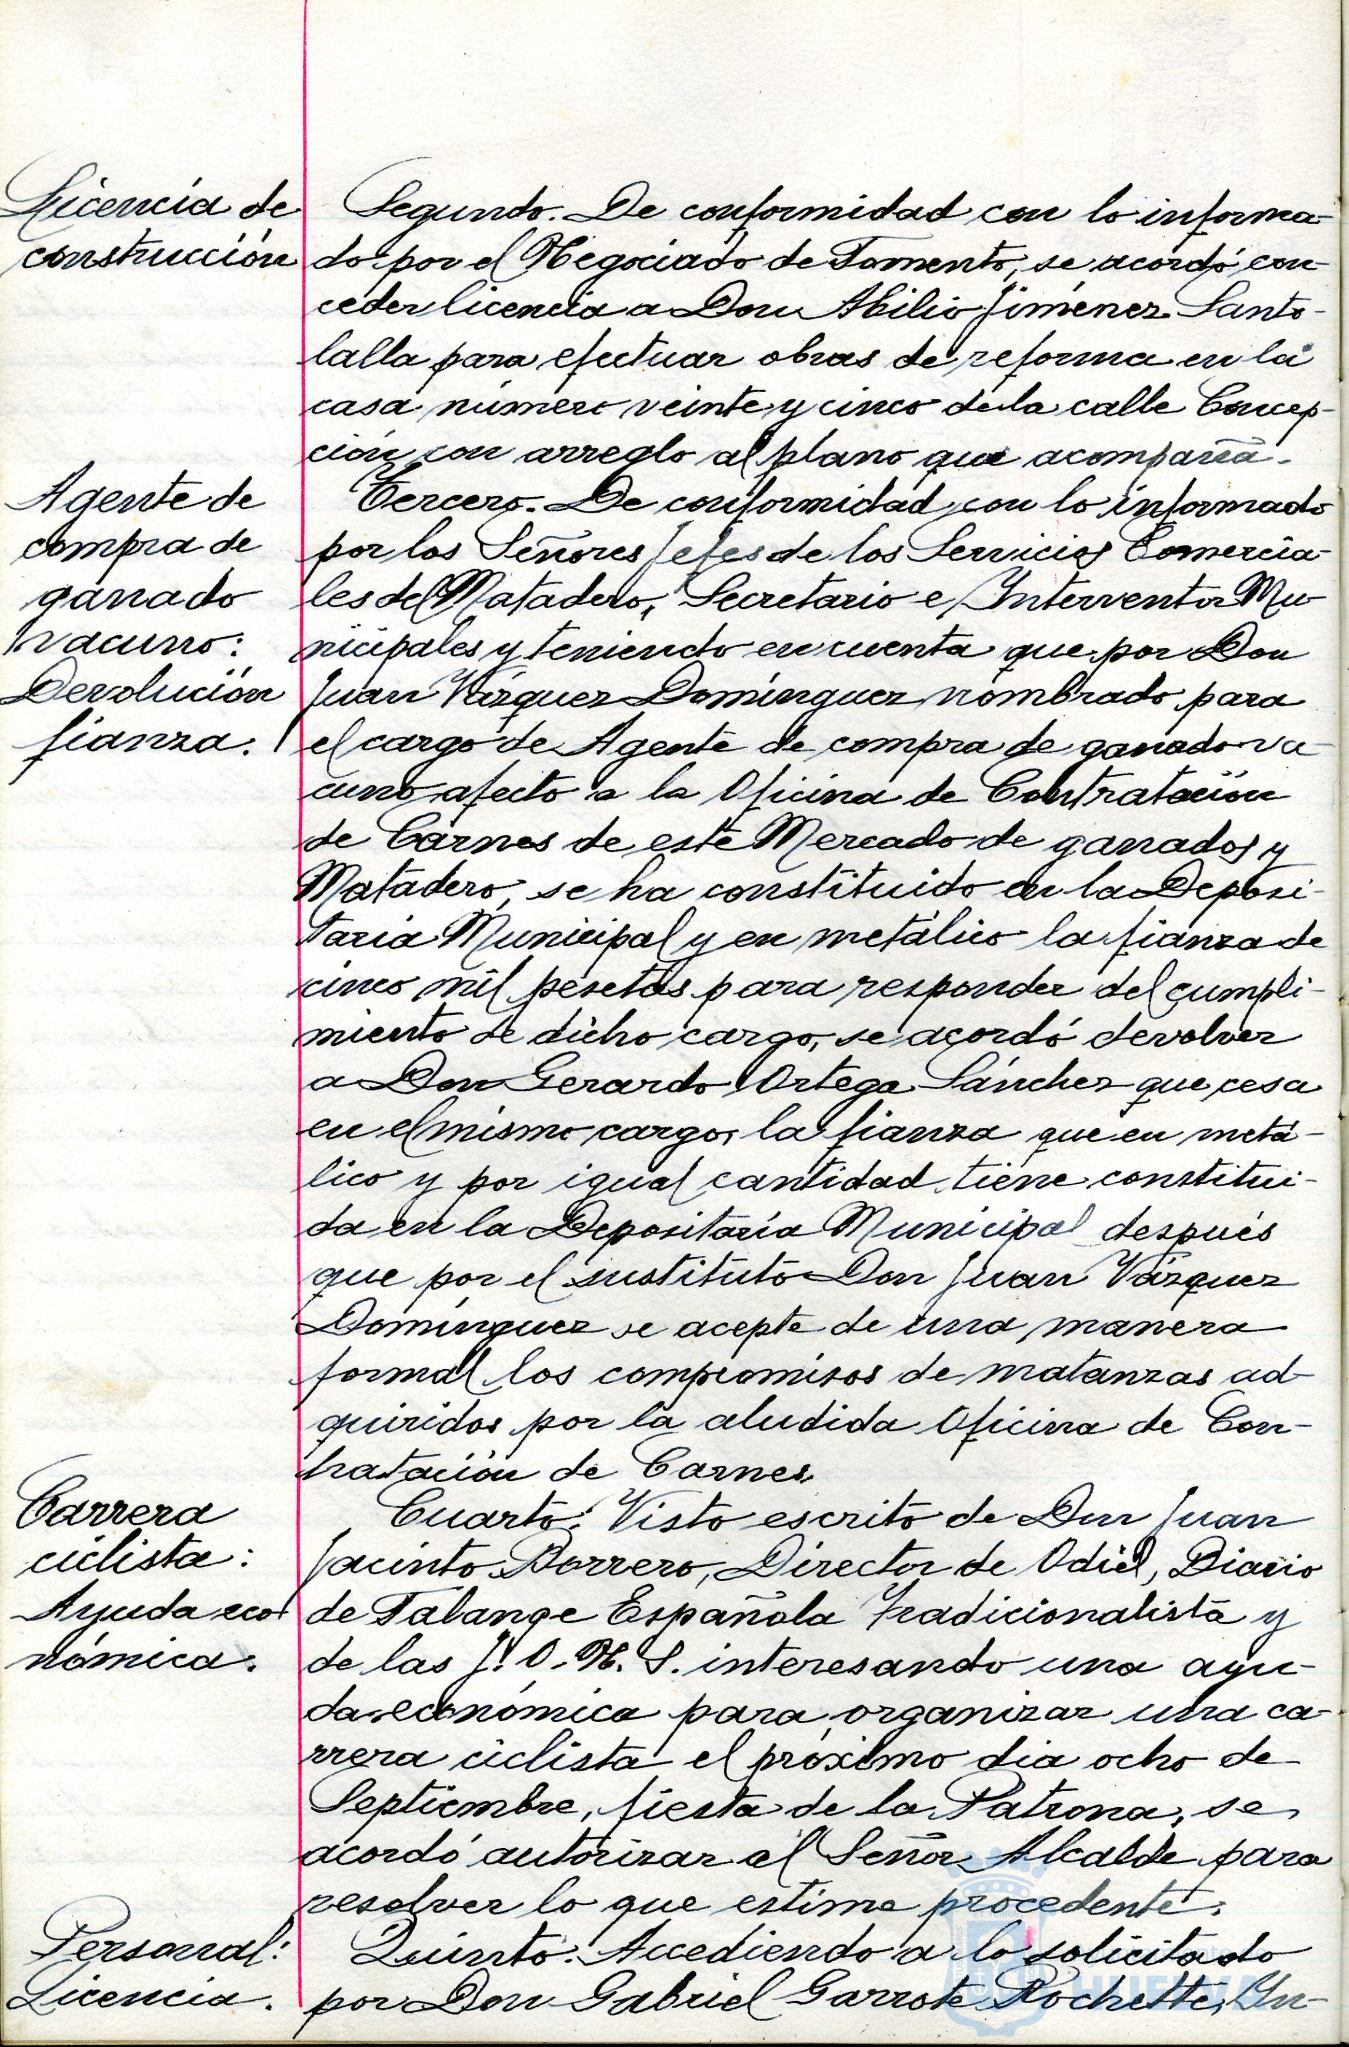 Licencia de
construcción
Segundo. De conformidad con lo informa-
do por el Negociado de Fomento, se acordó con-
ceder licencia a Don Abilio Jiménez Santo-
lalla para efectuar obras de reforma en la
casa número veinte y cinco de la calle Concep-
ción con arreglo al plano que acompaña.
Agente de
compra de
ganado
vacuno:
Devolución
fianza.
Tercero. De conformidad con lo informado
por los Señores Jefes de los Servicios Comercia-
les del Matadero, Secretario e Interventor Mu-
nicipales y teniendo en cuenta que por Don
Juan Vázquez Domínguez nombrado para
el cargo de Agente de compra de ganado va-
cuno afecto a la Oficina de Contratación
de Carnes de este Mercado de ganados y
Matadero, se ha constituido en la Deposi-
taría Municipal y en metálico la fianza de
cinco mil pesetas para responder del cumpli-
miento de dicho cargo, se acordó devolver
a Don Gerardo Ortega Sánchez que cesa
en el mismo cargo, la fianza que en metá-
lico y por igual cantidad tiene constitui-
da en la Depositaría Municipal después
que por el sustituto Don Juan Vázquez
Domínguez se acepte de una manera
formal los compromisos de matanzas ad-
quiridos por la aludida Oficina de Con-
tratación de Carnes.
Carrera
ciclista:
Ayuda eco-
nómica.
Cuarto. Visto escrito de Don Juan
Jacinto Borrero, Director de Odiel, Diario
de Falange Española Tradicionalista y
de las J. O. N. S. interesando una ayu-
da económica para organizar una ca-
rrera ciclista el próximo día ocho de
Septiembre, fiesta de la Patrona, se
acordó autorizar al Señor Alcalde para
resolver lo que estime procedente.
Personal:
Licencia.
Quinto. Accediendo a lo solicitado
por Don Gabriel Garrote Rochette, In-
HUELVA